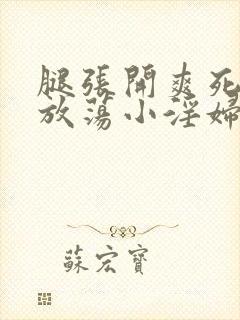 腿張開爽死
放蕩小淫婦
蘇宏寶